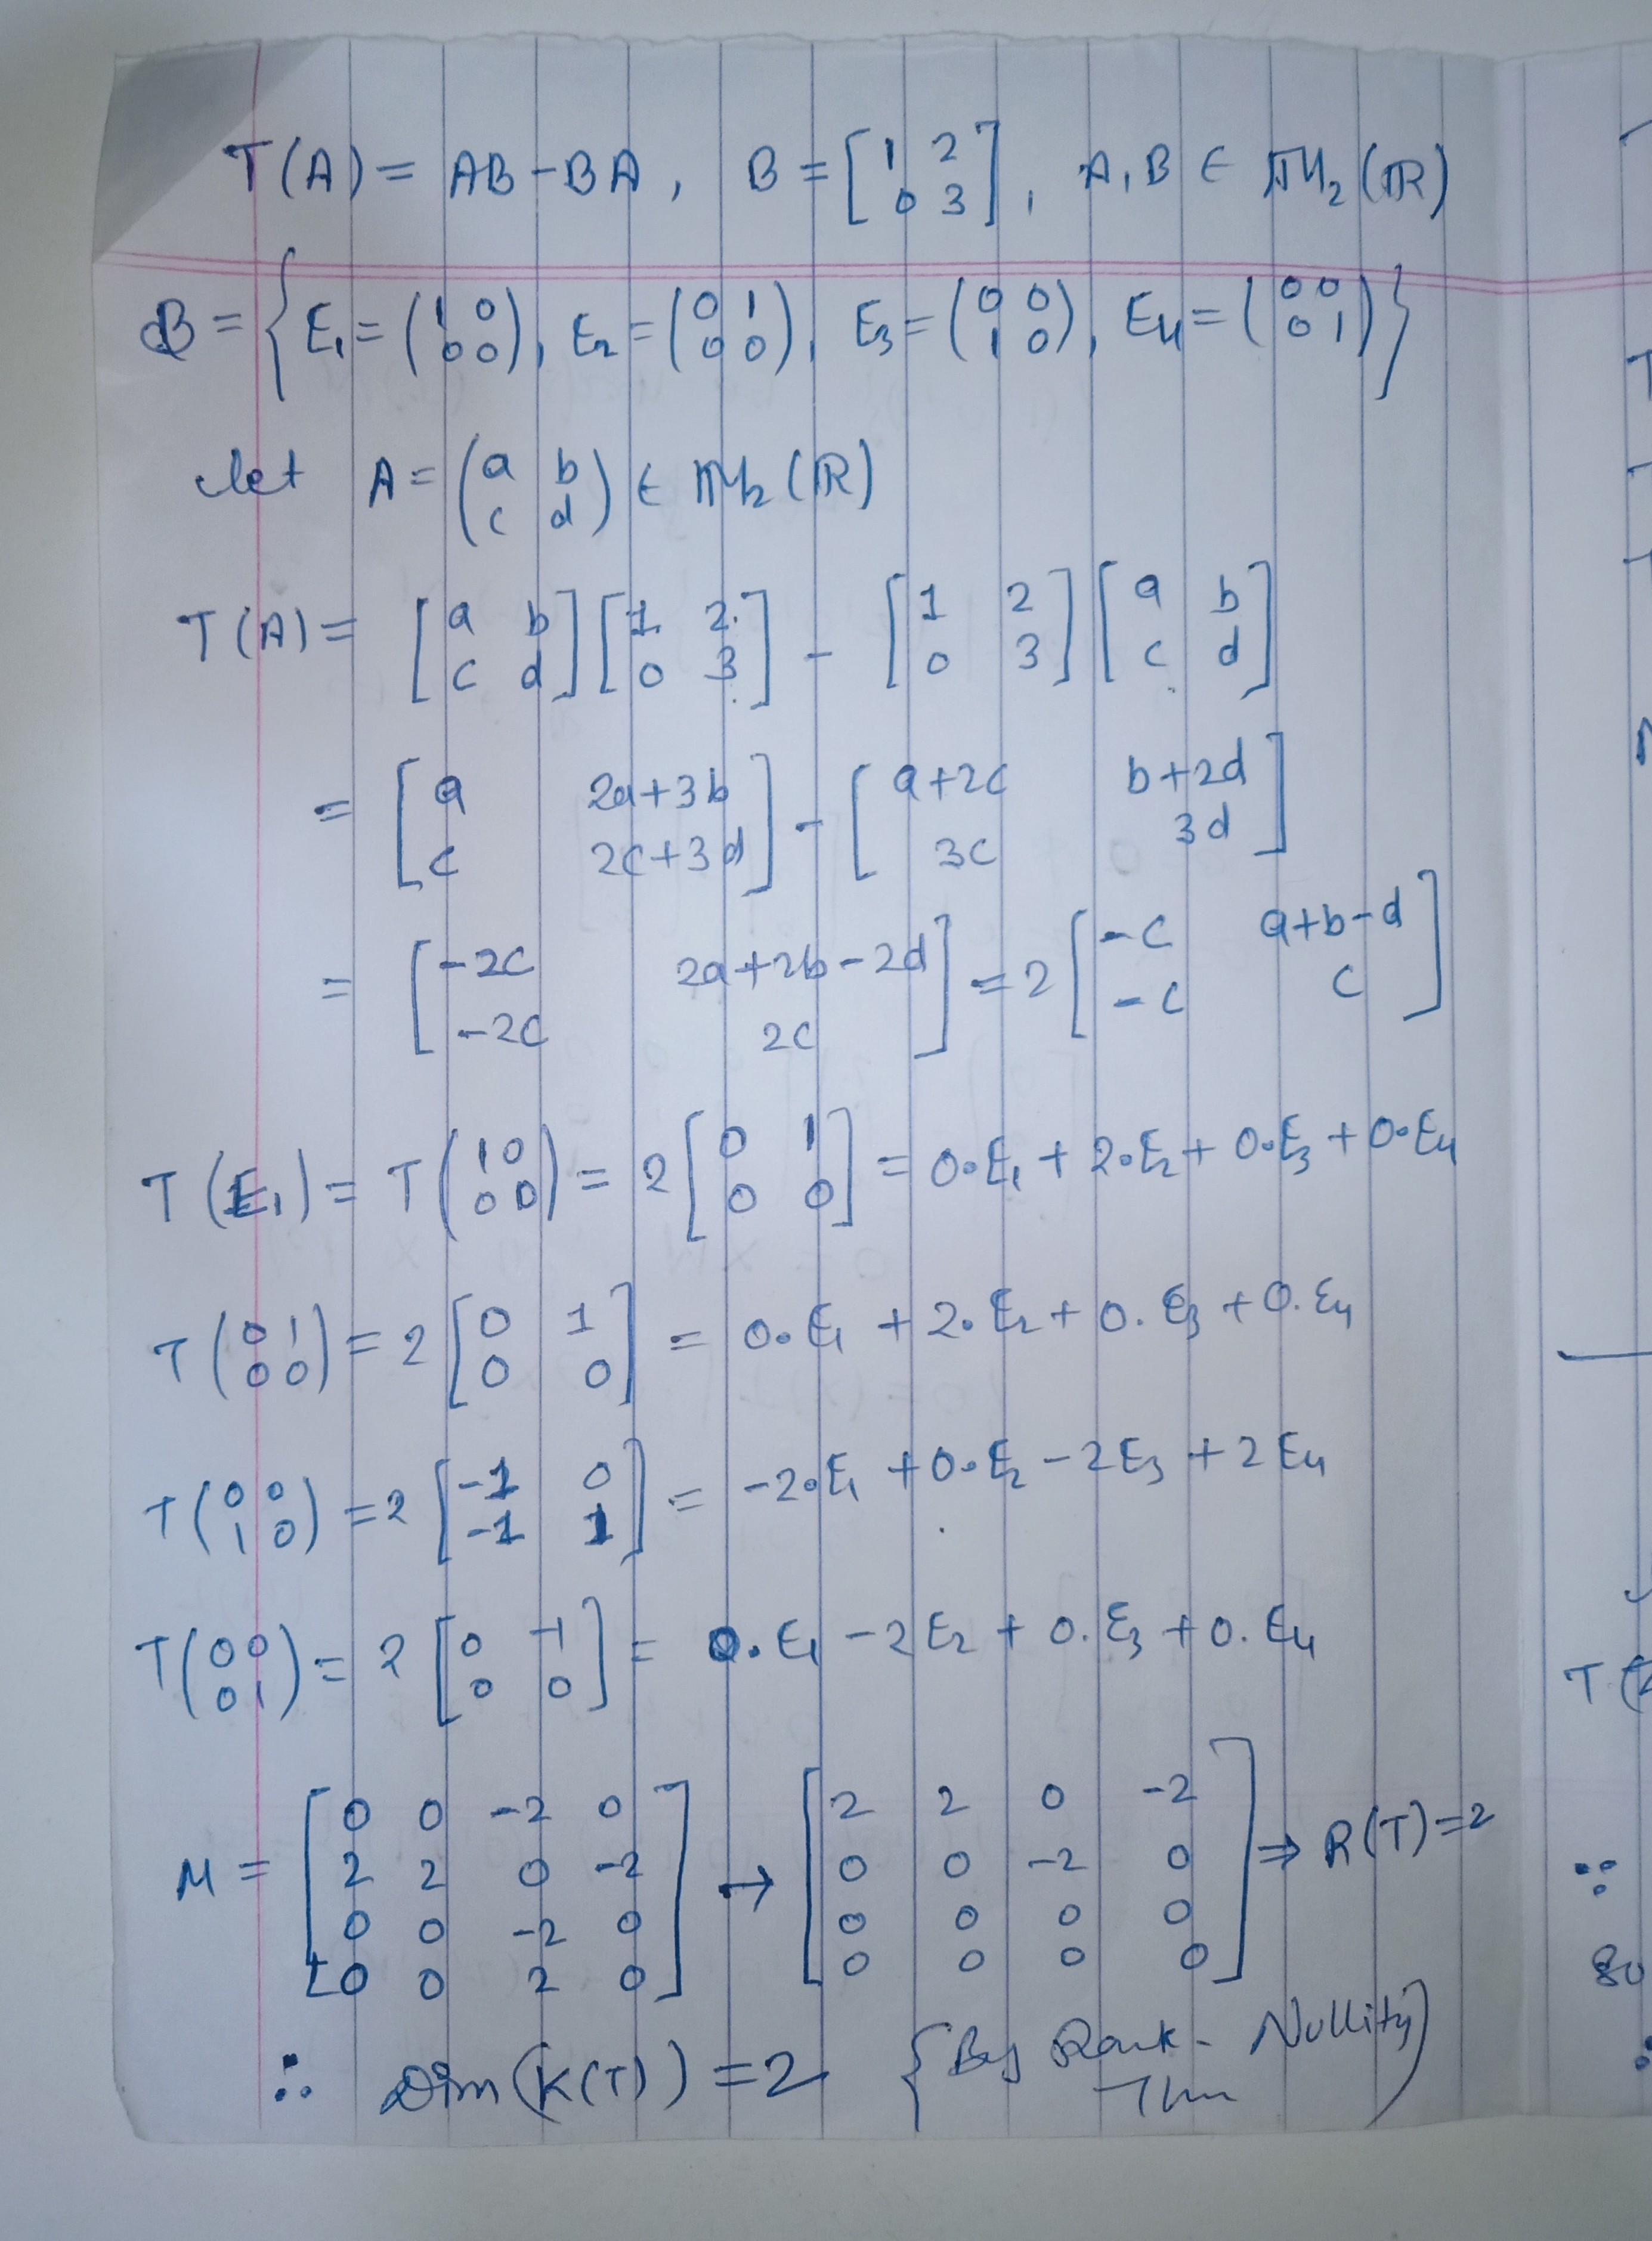 T(A) = AB - BA, B = [1 2; 0 3], A, B ∈ M₂(ℝ)
B = { E₁ = (1 0; 0 0), E₂ = (0 1; 0 0), E₃ = (0 0; 1 0), E₄ = (0 0; 0 1) }
let A = (a b; c d) ∈ M₂(ℝ)
T(A) = [a b; c d] [1 2; 0 3] - [1 2; 0 3] [a b; c d]
= [a 2a+3b; c 2c+3d] - [a+2c b+2d; 3c 3d]
= [-2c 2a+2b-2d; -2c 2c] = 2 [-c a+b-d; -c c]
T(E₁) = T(1 0; 0 0) = 2 [0 1; 0 0] = 0·E₁ + 2·E₂ + 0·E₃ + 0·E₄
T(0 1; 0 0) = 2 [0 1; 0 0] = 0·E₁ + 2·E₂ + 0·E₃ + 0·E₄
T(0 0; 1 0) = 2 [-1 0; -1 1] = -2·E₁ + 0·E₂ - 2E₃ + 2E₄
T(0 0; 0 1) = 2 [0 -1; 0 0] = 0·E₁ - 2E₂ + 0·E₃ + 0·E₄
M = [0 0 -2 0; 2 2 0 -2; 0 0 -2 0; 0 0 2 0] → [2 2 0 -2; 0 0 -2 0; 0 0 0 0; 0 0 0 0] ⇒ R(T) = 2
∴ Dim(K(T)) = 2 {By Rank-Nullity Thm}